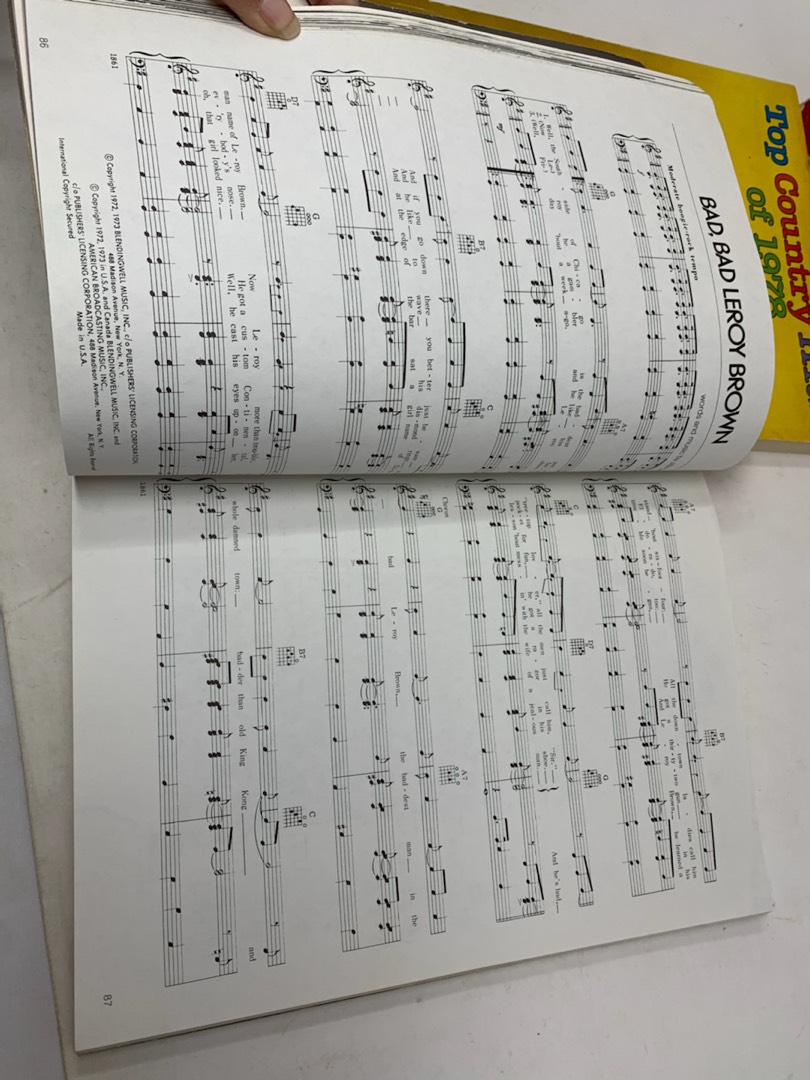 Top Country
of 1978
BAD, BAD LEROY BROWN
words and music
Moderate boogie-rock tempo
G
A7
1. Well, the South side of Chi - ca - go is the bad -
2. (Now Le - roy he a gam - bler and he like
3. (Well, Fri - day 'bout a week a - go, Le -
B7
C
And if you go down there you bet - ter just be -
And he like to wave his dia - mond
And at the edge of the bar sat a girl name
D7
G
man name of Le - roy Brown. Now Le - roy more than trou-ble
ev - 'ry - bod - y's nose. He got a cus - tom Con - ti - nen - tal,
oh, that girl looked nice. Well, he cast his eyes up - on
© Copyright 1972, 1973 BLENDINGWELL MUSIC, INC. c/o PUBLISHERS' LICENSING CORPORATION,
488 Madison Avenue, New York, N. Y.
© Copyright 1972, 1973 in U.S.A. and Canada BLENDINGWELL MUSIC, INC. and
AMERICAN BROADCASTING MUSIC, INC.,
c/o PUBLISHERS' LICENSING CORPORATION, 488 Madison Avenue, New York, N.Y.
International Copyright Secured Made in U.S.A. All Rights
1861
86
A7
B7
All the down - town la - dies call him
He got a thir - ty - two gun in his
And Le - roy Brown, he learned a
C
D7
G
er," all the men just call him, "Sir."
pock - et for fun, he got a ra - zor in his shoe.
les - son 'bout mess - in' with the wife of a jeal - ous man.
And he's bad,
Chorus
G
A7
bad Le - roy Brown, the bad - dest man in the
B7
C
whole damned town; bad - der than old King Kong and
1861
87